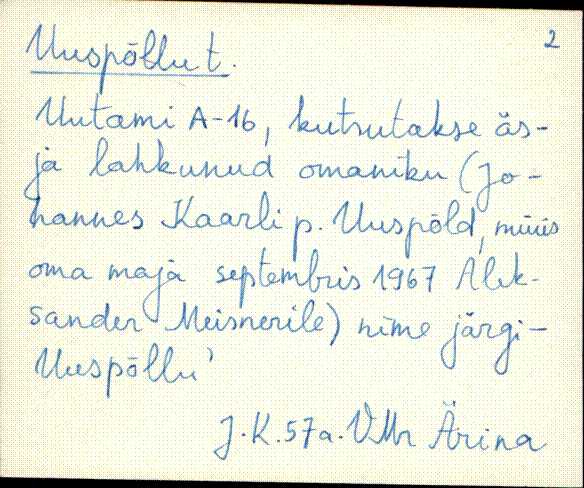 2
Uuspõllu t.
Uutami A-16, kutsutakse äs-
ja lahkunud omaniku (Jo-
hannes Kaarli p. Uuspõld, müüs
oma maja septembris 1967 Alek-
sander Meisnerile) nime järgi –
Uuspõllu'
J.K. 57a. VMr Ärina